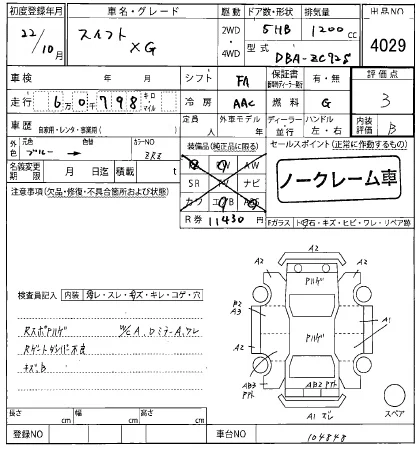 初度登録年月 車名・グレード 駆動 ドア数・形状 排気量 出品NO
22/10月 スイフト XG 2WD 4WD 5HB 1200cc 4029
型式 DBA-ZC72S
車検 年 月 シフト FA 保証書 有・無 評価点
走行 6万0千798 キロ・マイル 冷房 AAC 燃料 G 3
車歴 自家用・レンタ・事業用( ) 定員 人 外車モデル 年 ディーラー・並行 ハンドル 左・右 内装評価 B
外色 元色 ブルー → 色替 カラーNO
装備品(純正品に限る)
セールスポイント(正常に作動するもの)
名義変更期限 月 日迄 積載 t
SR ナビ
ノークレーム車
注意事項(欠品・修復・不具合箇所および状態)
R券 11430円
Fガラス
キズ・ヒビ・ワレ・リペア跡
検査員記入 内装 スレ・キズ・キレ・コゲ・穴
RスポPハゲ W/C A, DミラーA, ワレ
Rゲートダンパー不良
キズB
A2 A2
Pハゲ
A2 A2
B2 A3
A1
AB3 AB2 A2
A1 ズレ
スペア
長さ cm 幅 cm 高さ cm
登録NO 車台NO 104848